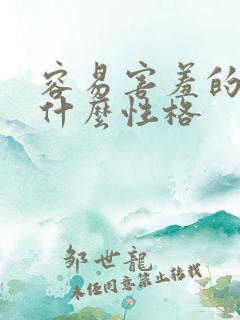 容易害羞的
什麼性格
邹世龙
未经同意禁止转载